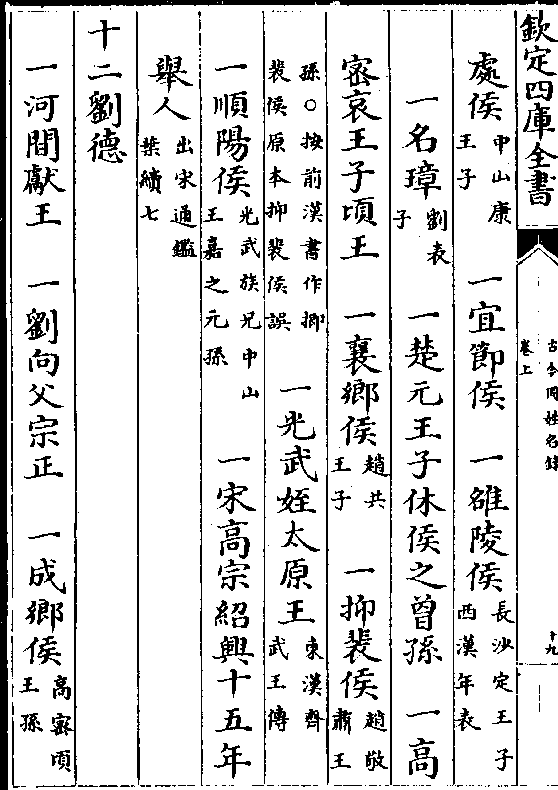 欽定四庫全書
古今同姓名錄
卷上
十九
處侯中山康王子 一宜節侯 一雒陵侯長沙定王子西漢年表
一名璋劉表子 一楚元王子休侯之曾孫 一高
密哀王子頃王 一襄鄉侯趙共王子 一抑裴侯趙敬肅王
孫○按前漢書作抑裴侯原本抑裴侯誤 一光武姪太原王東漢齊武王傳
一順陽侯光武族兄中山王嘉之元孫 一宋高宗紹興十五年
舉人出宋通鑑葉續七
十二劉德
一河間獻王 一劉向父宗正 一成鄉侯高密頃王孫